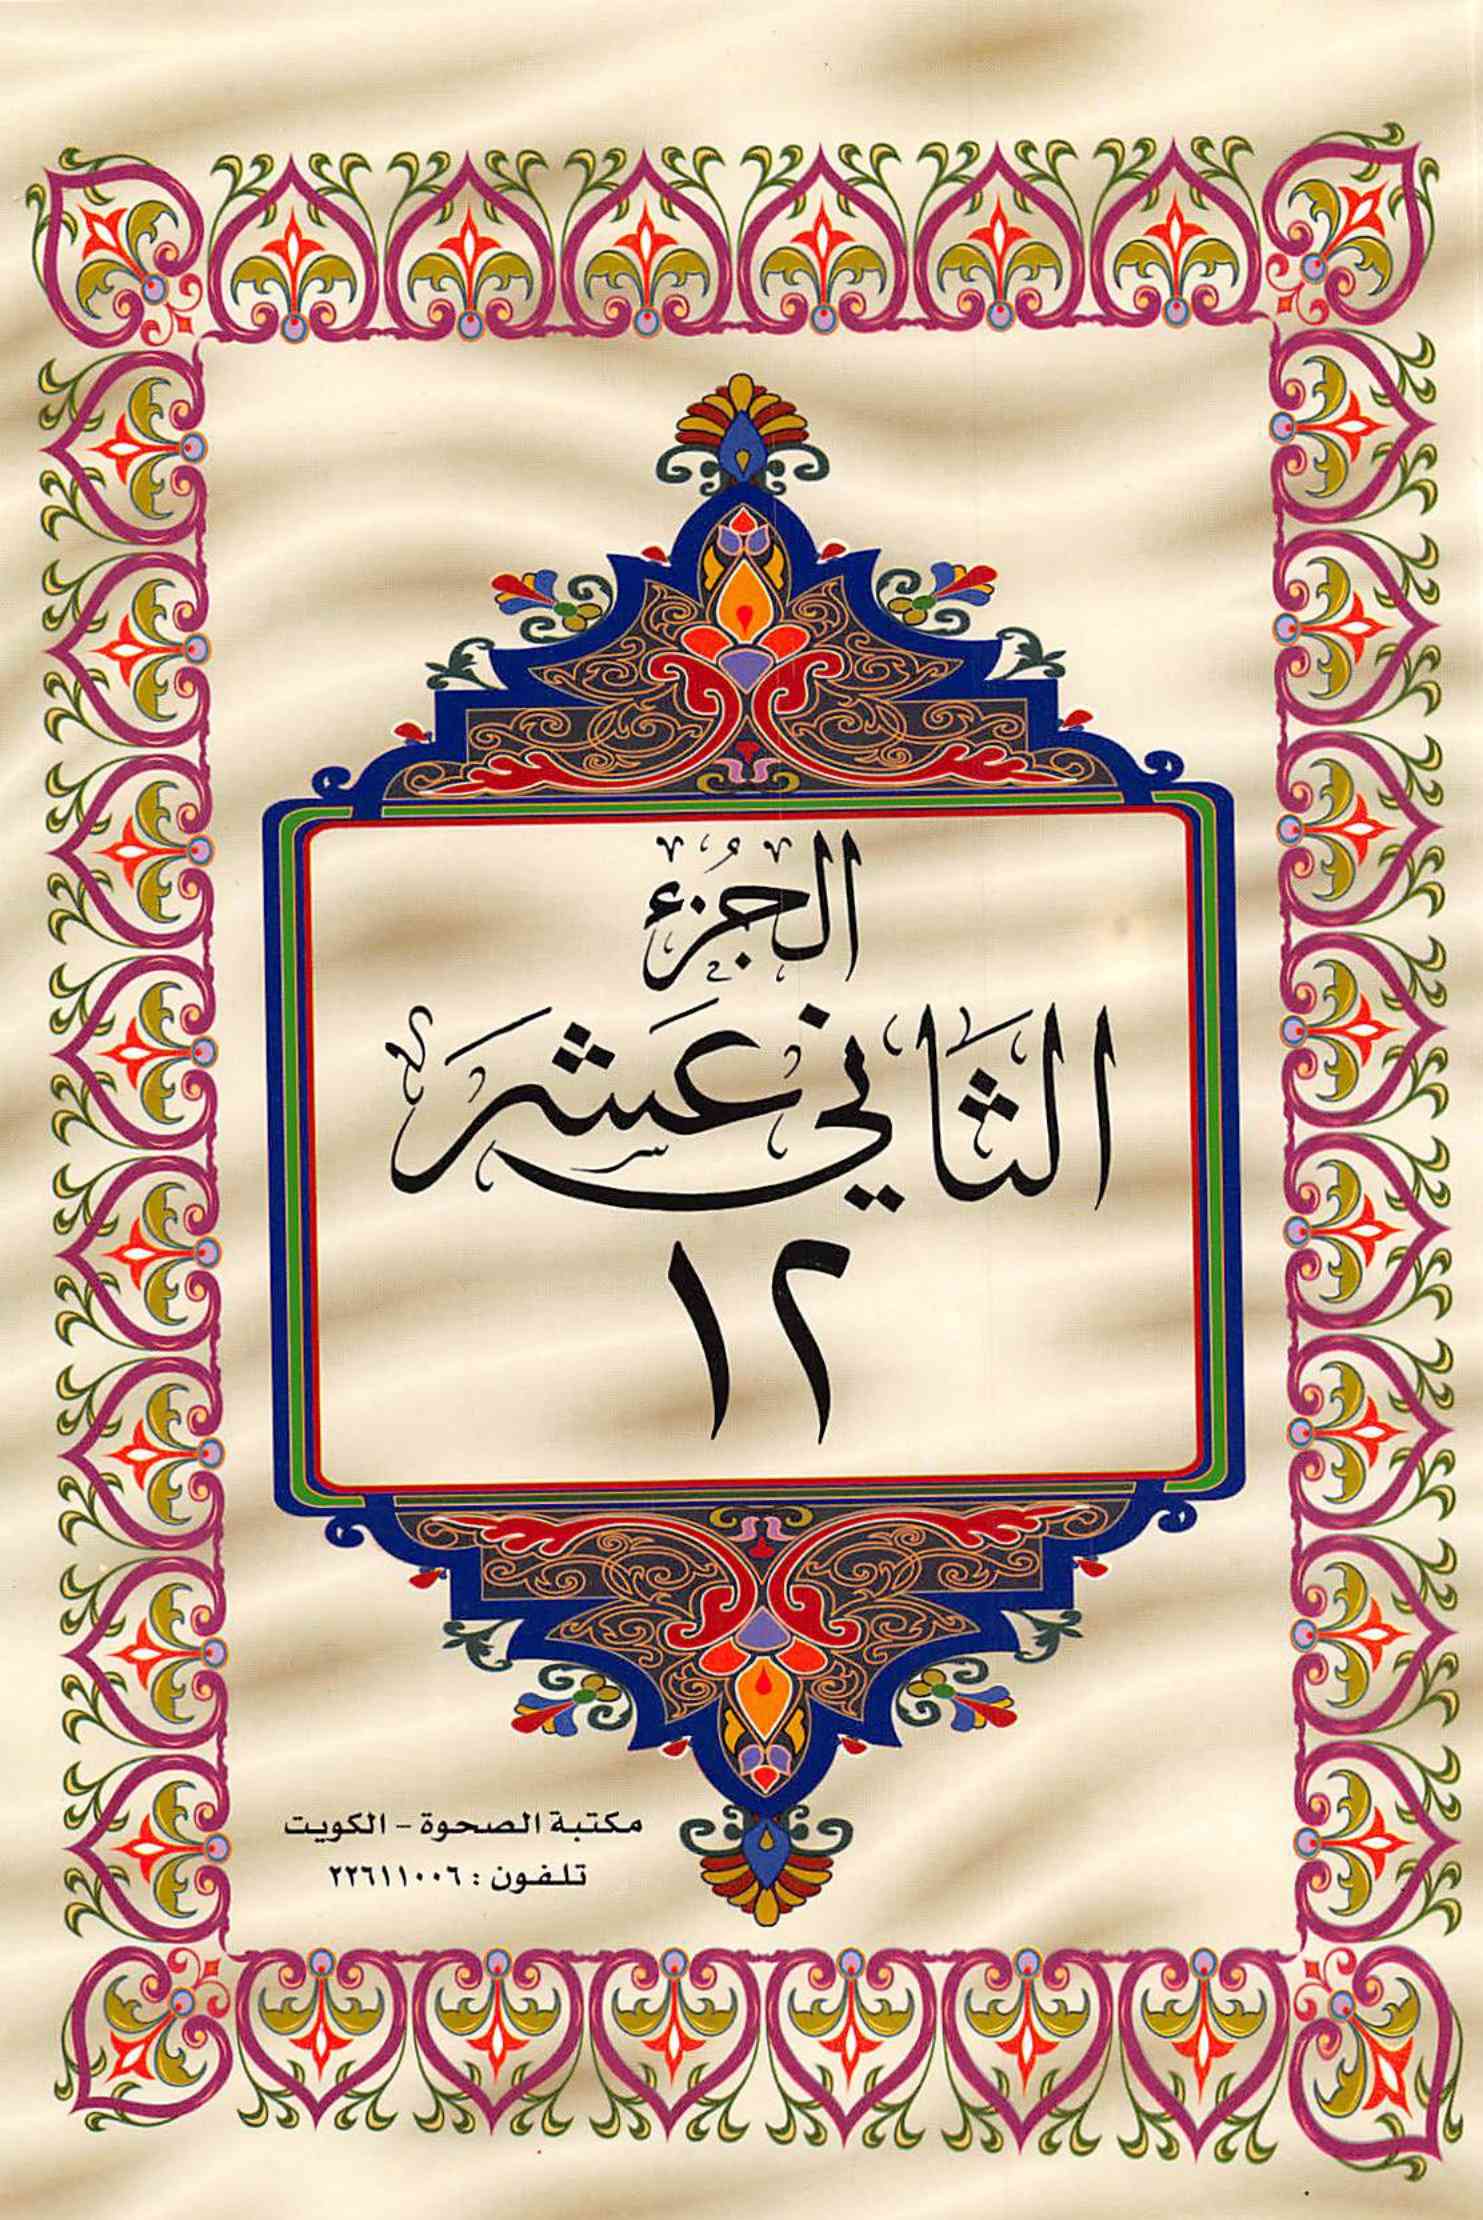 الجزء
الثاني عشر
١٢
مكتبة الصحوة - الكويت
تلفون : ٢٢٦١١٠٠٦